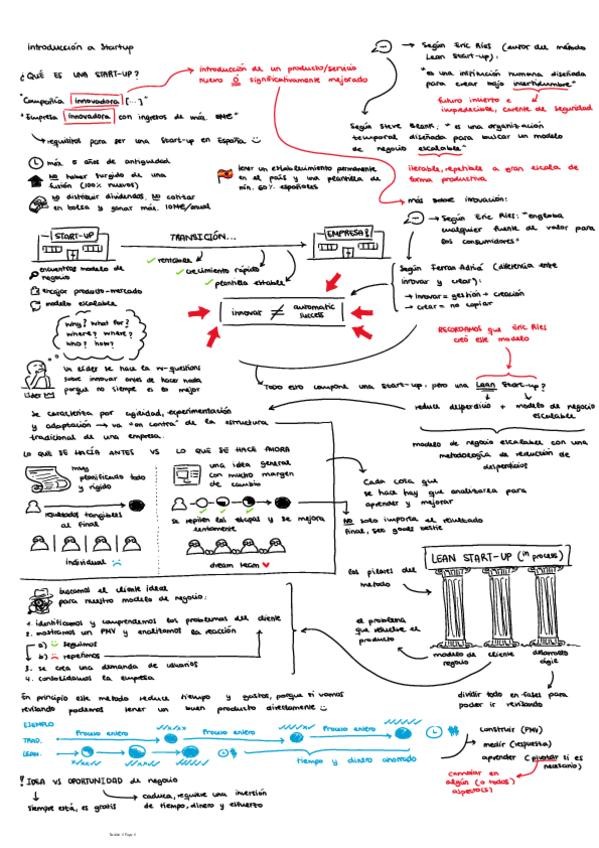 Introducción a Startup
¿QUÉ ES UNA START-UP?
"Compañía innovadora [...]"
"Empresa innovadora con ingresos de más
introducción de un producto/servicio
nuevo o significativamente mejorado
requisitos para ser una Start-up en España
más 5 años de antigüedad
NO haber surgido de una
fusión (100% nuevos)
NO distribuir dividendos, NO cotizar
en bolsa y ganar máx. 10M€/anual
tener un establecimiento permanente
en el país y una plantilla de
mín. 60% españoles
Según Eric Ries (autor del método
Lean Start-up):
"es una institución humana diseñada
para crear bajo incertidumbre"
futuro incierto e
impredecible, carente de seguridad
Según Steve Blank: "es una organización
temporal diseñada para buscar un modelo
de negocio escalable"
iterable, repetible a gran escala de
forma productiva
más sobre innovación:
Según Eric Ries: "engloba
cualquier fuente de valor para
los consumidores"
Según Ferran Adrià (diferencia entre
innovar y crear):
innovar = gestión + creación
crear = no copiar
START-UP
TRANSICIÓN...
EMPRESA!
rentable
crecimiento rápido
plantilla estable
encuentras modelo de
negocio
encajar producto-mercado
modelo escalable
innovar ≠ automatic
success
Why? What for?
Where? Where?
Who? How?
Un líder se hace la w-questions
sobre innovar antes de hacer nada
porque no siempre es es mejor
Líder
RECORDAMOS que Eric Ries
creó este modelo
Todo esto compone una Start-up, pero una Lean Start-up?
reduce desperdicio + modelo de negocio
escalable
modelo de negocio escalable con una
metodología de reducción de
desperdicios
Se caracteriza por agilidad, experimentación
y adaptación → va "en contra" de la estructura
tradicional de una empresa.
LO QUE SE HACÍA ANTES VS LO QUE SE HACE AHORA
muy
planificado todo
y rígido
una idea general
con mucho margen
de cambio
resultados tangibles
al final
se repiten las etapas y se mejora
lentamente
individual
dream team
Cada cosa que
se hace hay que analizarla para
aprender y mejorar
NO solo importa el resultado
final,
los pilares del
método
LEAN START-UP (in process)
el problema
que resuelve el
producto
modelo de
negocio
cliente
desarrollo
ágil
dividir todo en fases para
poder ir revisando
buscamos el cliente ideal
para nuestro modelo de negocio:
1. identificamos y comprendemos los problemas del cliente
2. mostramos un PMV y analizamos la reacción
a) seguimos
b) repetimos
3. se crea una demanda de usuarios
4. consolidamos la empresa
En principio este método reduce tiempo y gastos, porque si vamos
revisando podemos tener un buen producto directamente
EJEMPLO
TRAD. Proceso entero Proceso entero Proceso entero
LEAN.
tiempo y dinero ahorrado
construir (PMV)
medir (respuesta)
aprender (pivotar si es
necesario)
cambiar en
algún (o todos)
aspecto(s)
! IDEA VS OPORTUNIDAD de negocio
siempre está, es gratis
caduca, requiere una inversión
de tiempo, dinero y esfuerzo